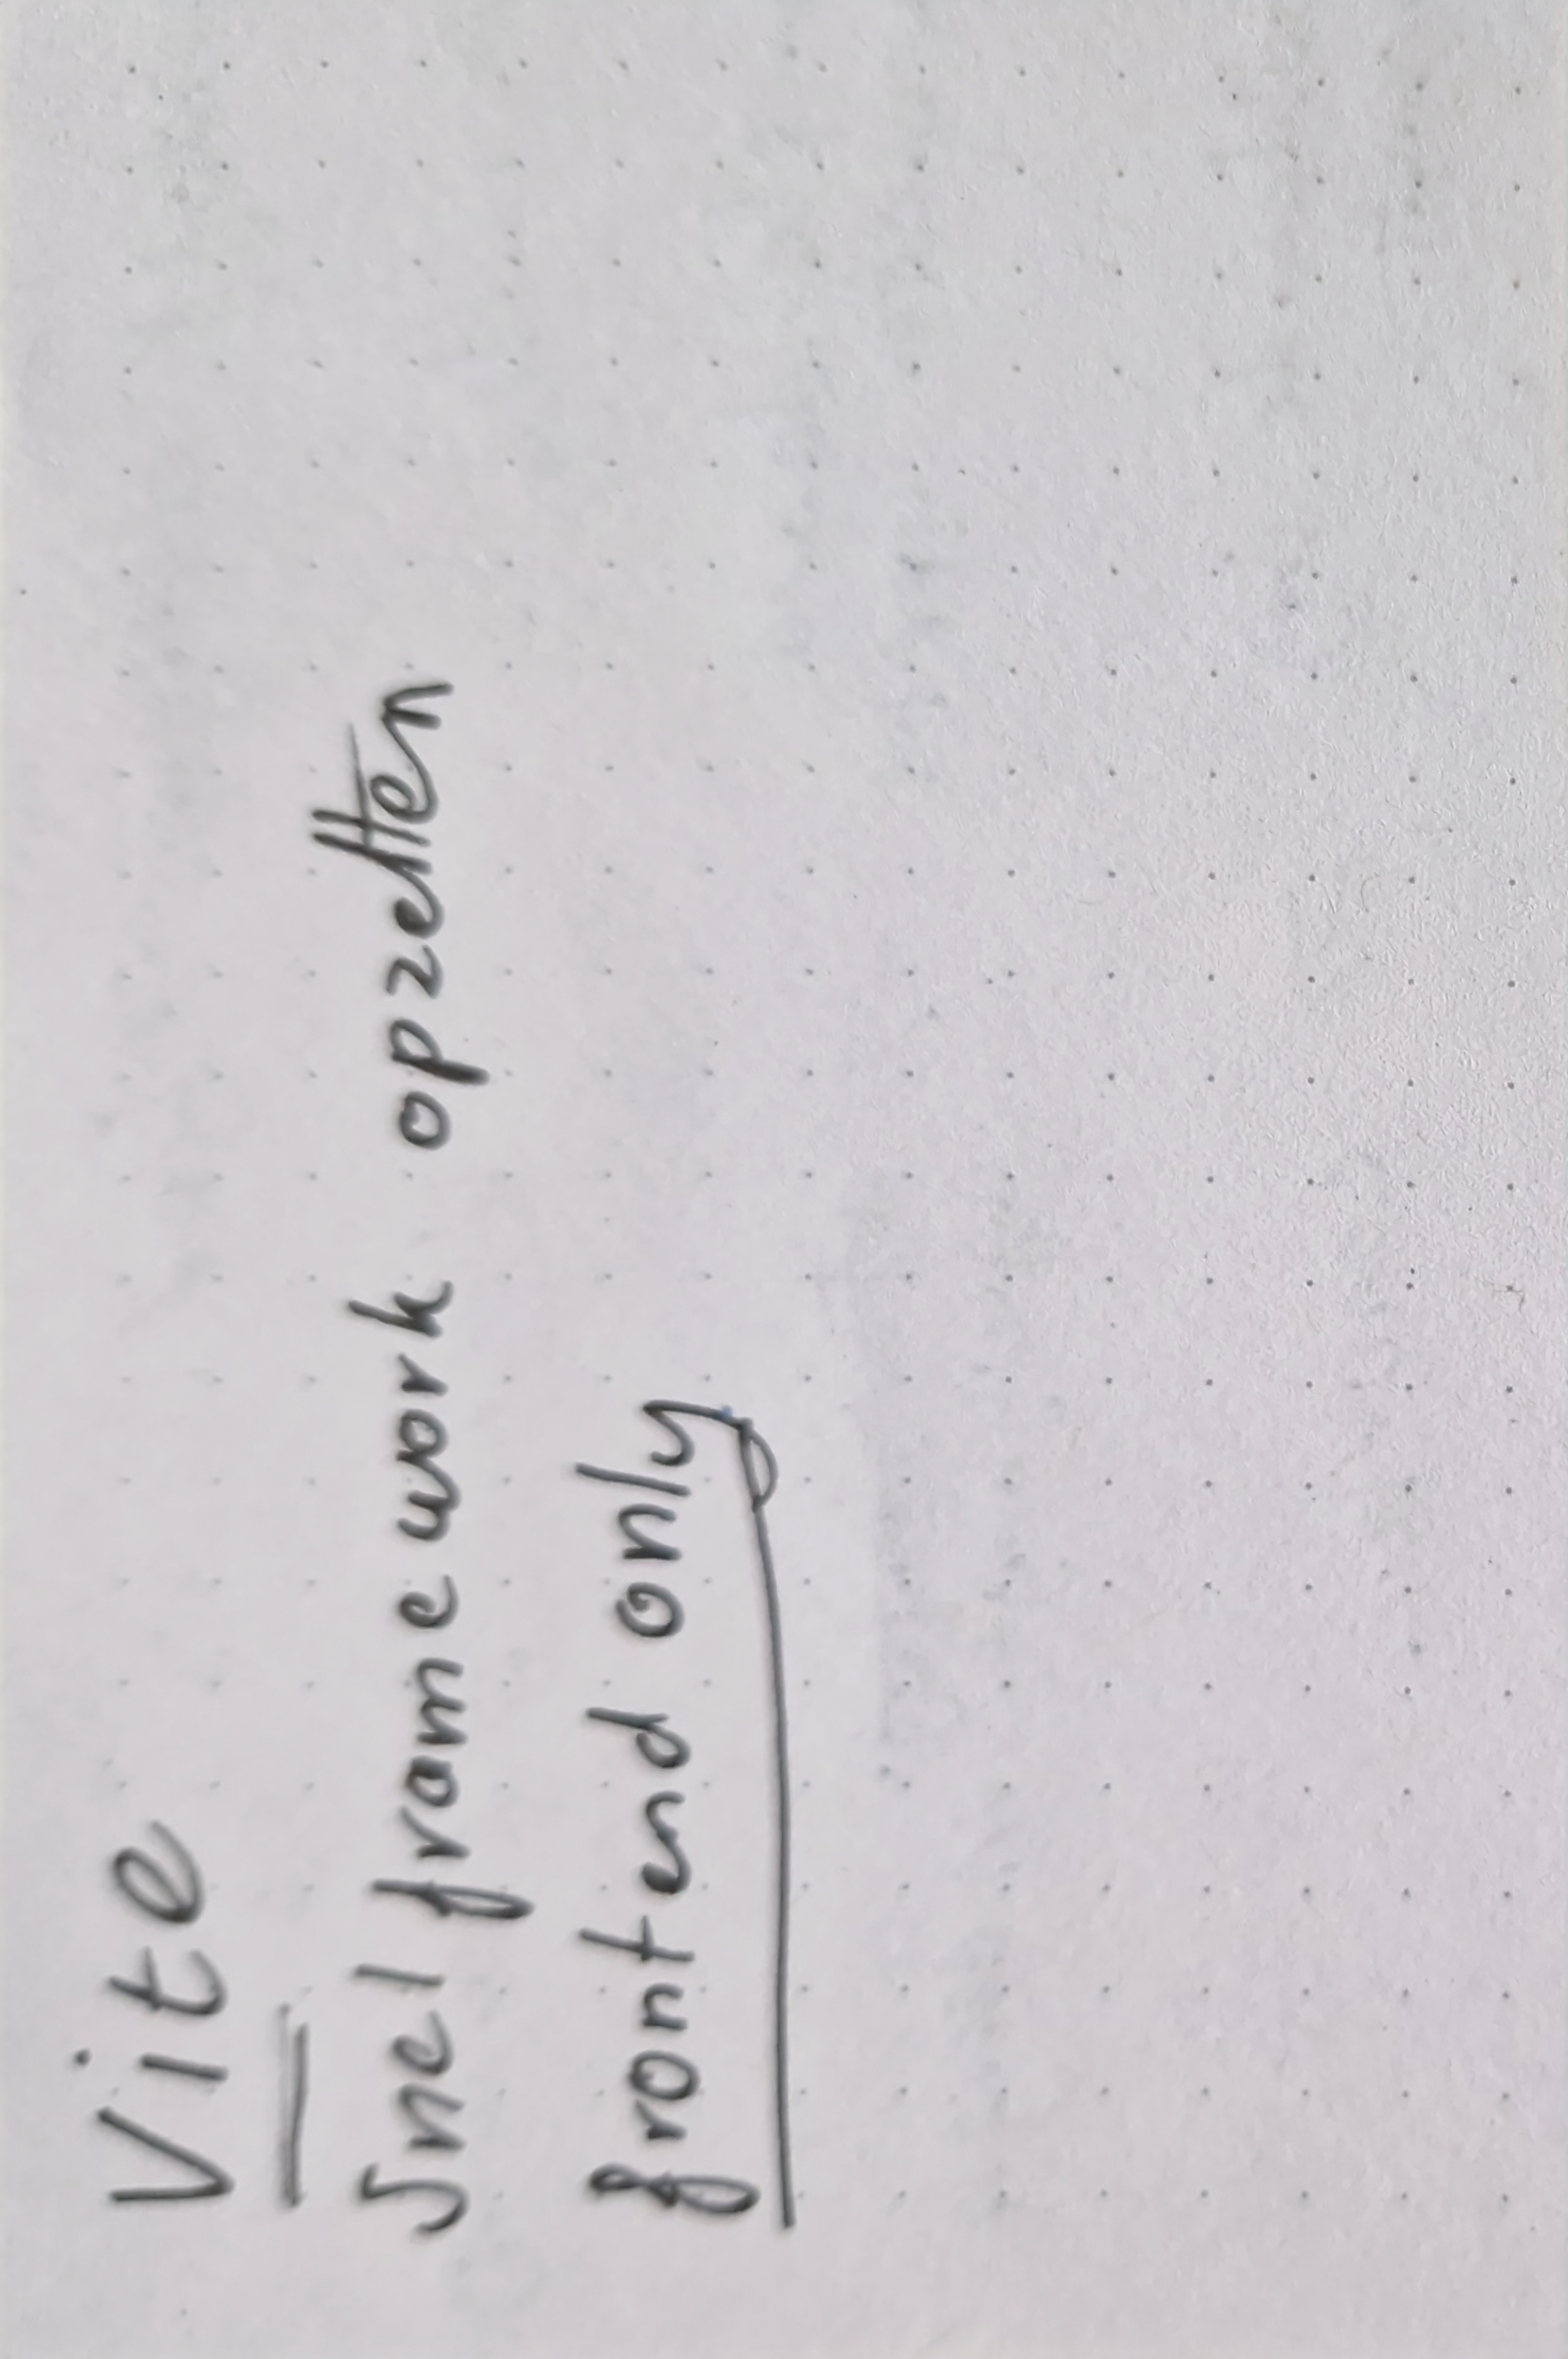 Vite
Snel framework opzetten
frontend only